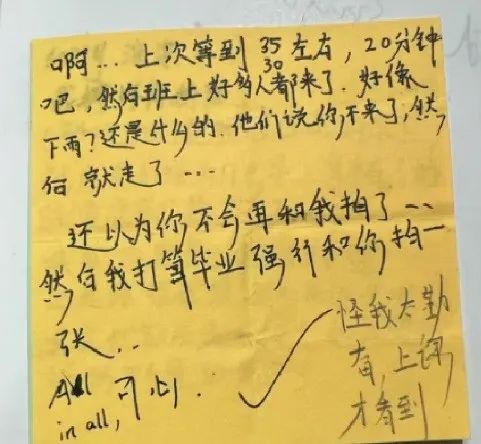 啊... 上次等到35左右, 20分钟
30
吧, 然后班上好多人都来了. 好像
下雨?还是什么的. 他们说你不来了, 然
后 就走了 ...
还以为你不会再和我拍了...
然后我打算毕业强行和你拍一
张...
All 可以.
in all,
怪我太勤
奋, 上课
才看到